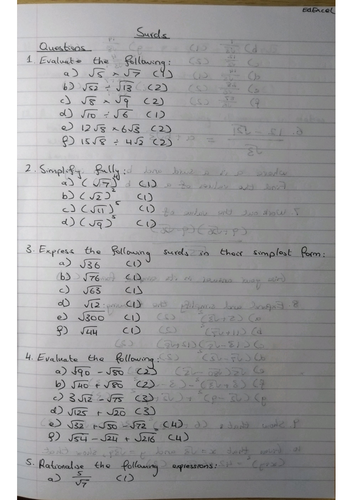 Edexcel
Surds
Questions
1. Evaluate the following:
a) √5 × √7 (1)
b) √52 ÷ √13 (2)
c) √8 × √9 (2)
d) √10 ÷ √6 (1)
e) 12√8 × 6√3 (2)
f) 15√8 ÷ 4√2 (2)
2. Simplify fully:
a) (√7)⁴ (1)
b) (√2)⁵ (1)
c) (√11)⁵ (1)
d) (√9)⁵ (1)
3. Express the following surds in their simplest form:
a) √36 (1)
b) √76 (1)
c) √63 (1)
d) √12 (1)
e) √300 (1)
f) √44 (1)
4. Evaluate the following:
a) √90 - √50 (2)
b) √40 + √80 (2)
c) 3√12 - √75 (3)
d) √125 + √20 (3)
e) √32 + √50 - √72 (4)
f) √54 - √24 + √216 (4)
5. Rationalise the following expressions:
a) 5/√7 (1)